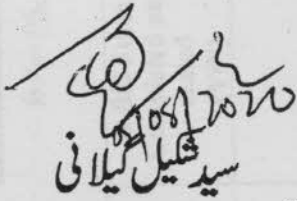 08/08/2020
سید شکیل گیلانی